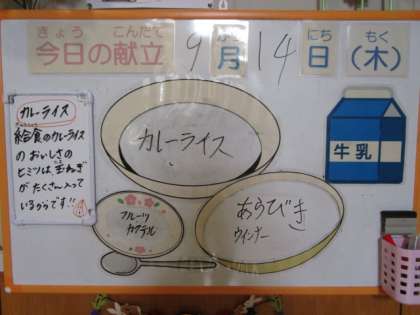 きょう こんだて
今日の献立
9月14日(木)
がつ にち もく
カレーライス
給食のカレーライス
のおいしさの
ヒミツは、玉ねぎ
がたくさん入って
いるからです!!
カレーライス
牛乳
フルーツ
カクテル
あらびき
ウインナー